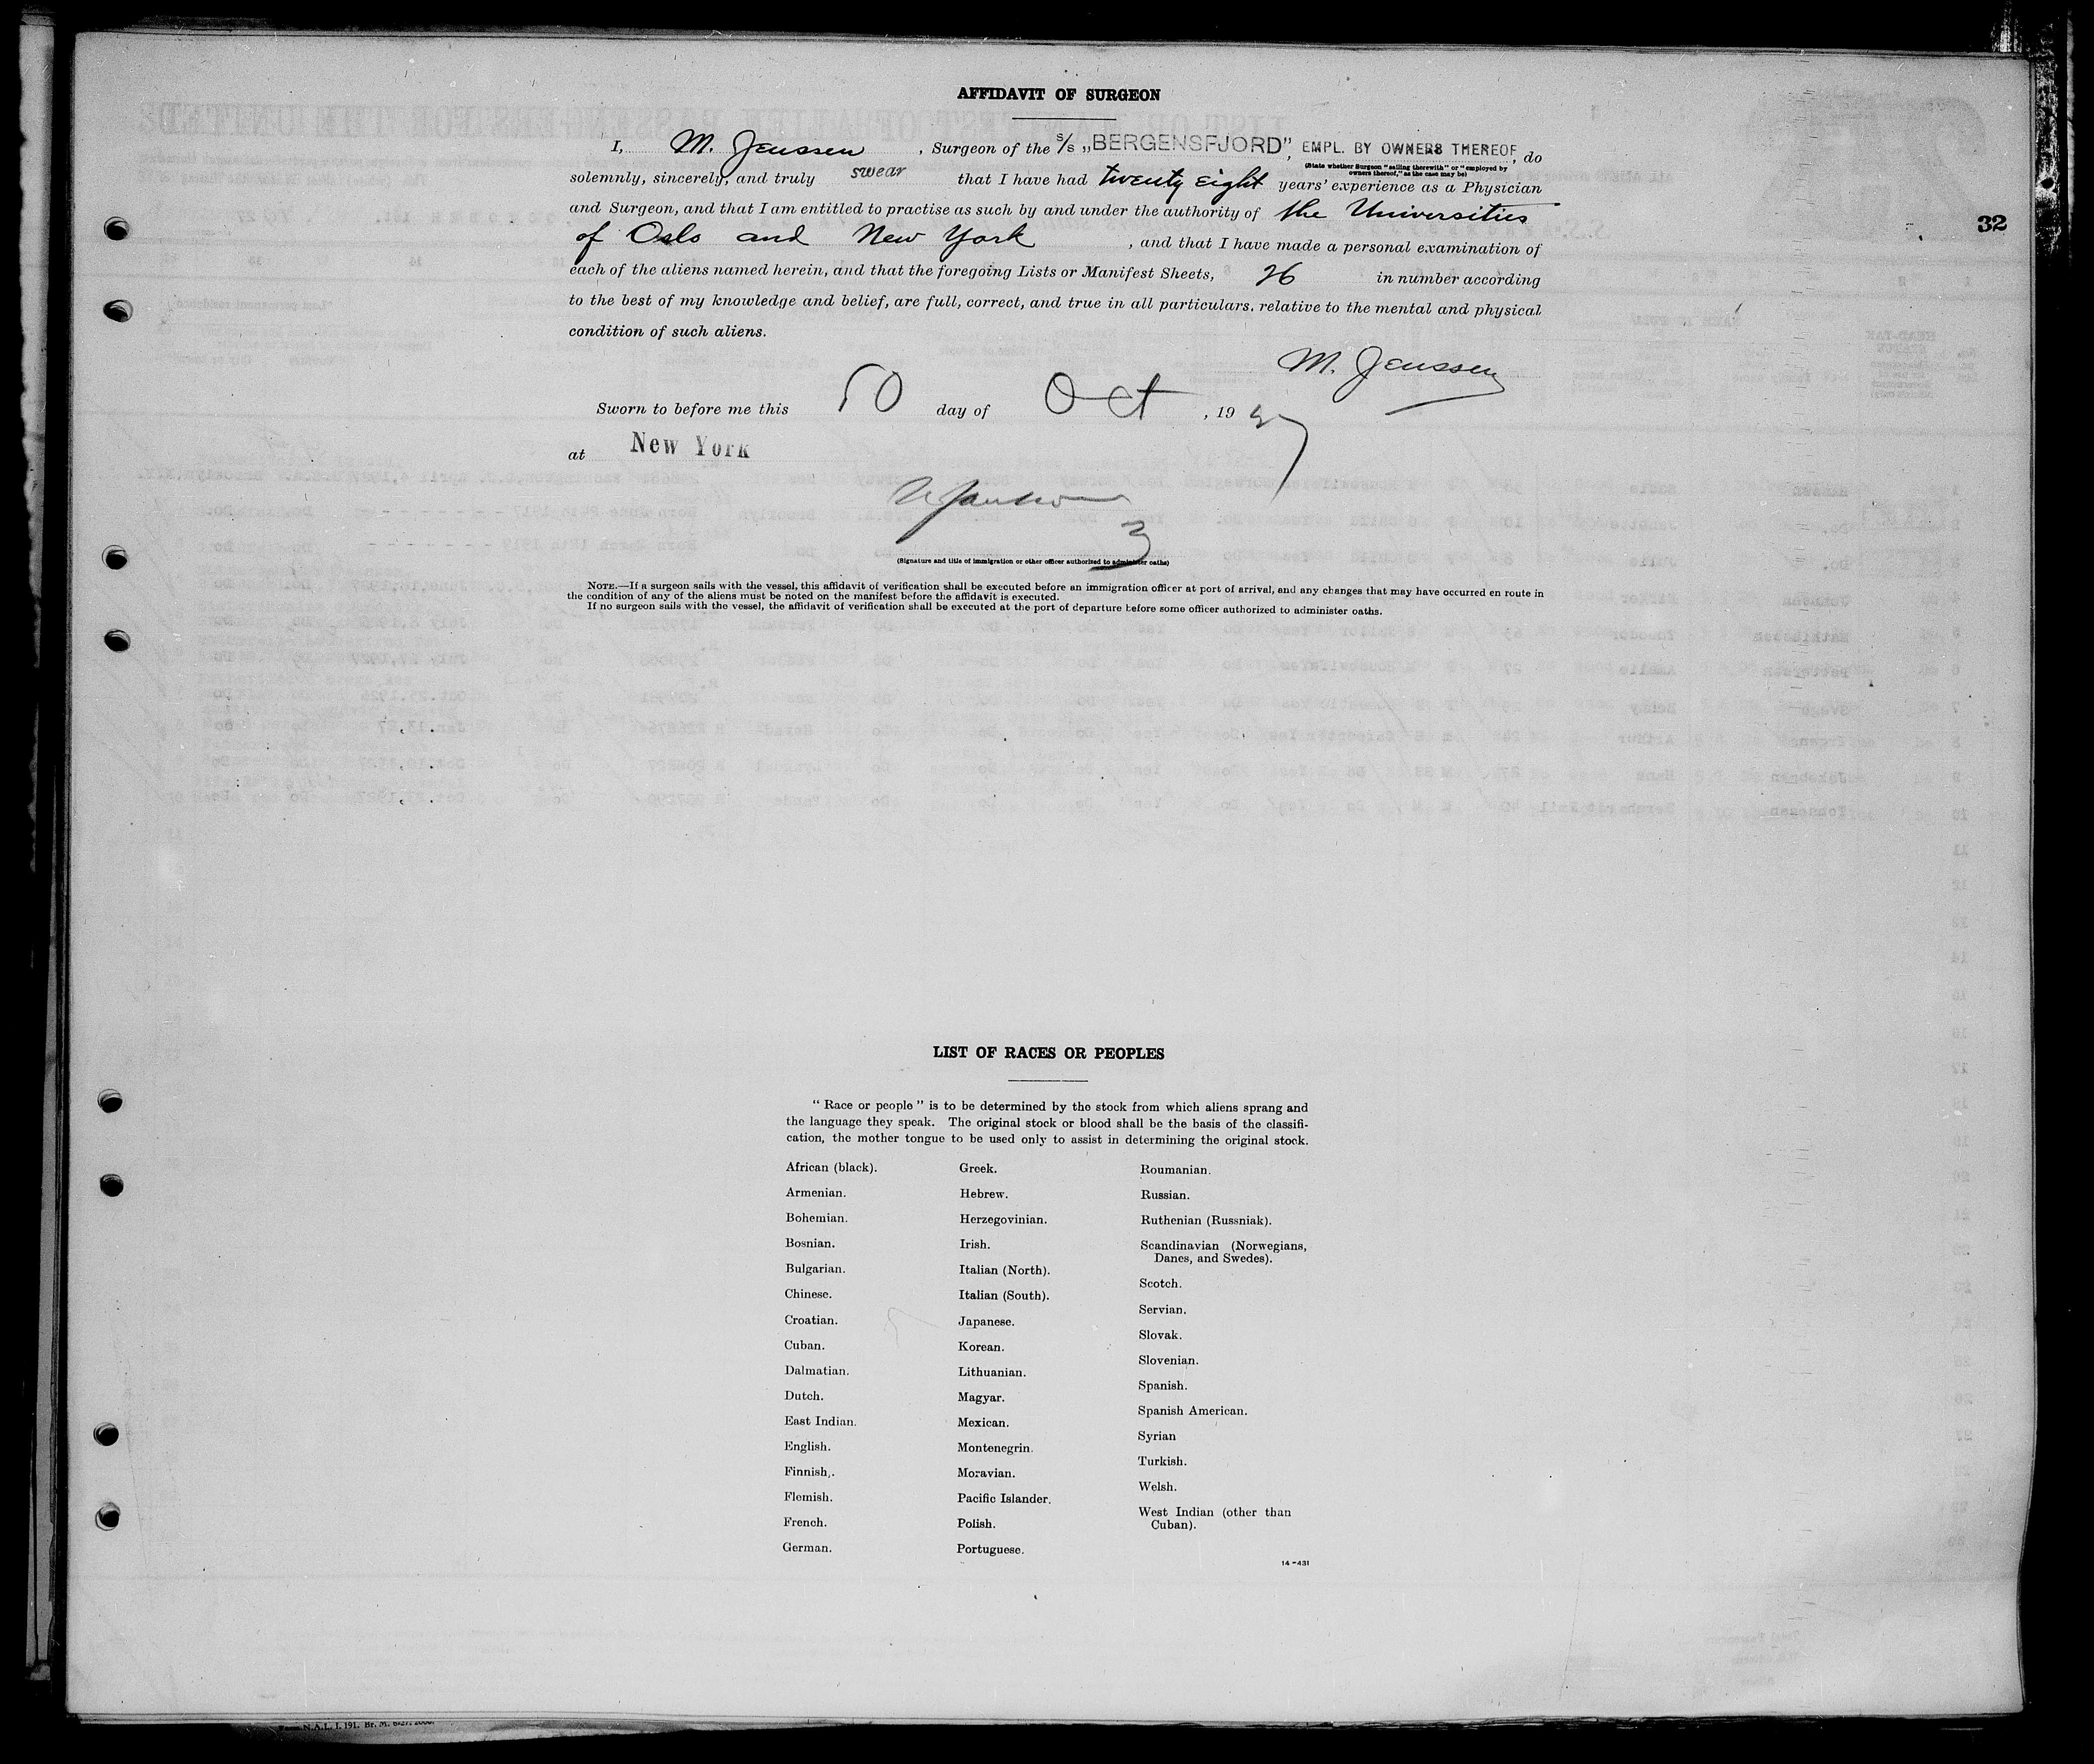 AFFIDAVIT OF SURGEON
32
I, M. Jenssen, Surgeon of the S/S „BERGENSFJORD", EMPL. BY OWNERS THEREOF, do
(State whether Surgeon "sailing therewith" or "employed by
owners thereof," as the case may be)
solemnly, sincerely, and truly swear that I have had twenty eight years' experience as a Physician
and Surgeon, and that I am entitled to practise as such by and under the authority of the Universities
of Oslo and New York, and that I have made a personal examination of
each of the aliens named herein, and that the foregoing Lists or Manifest Sheets, 26 in number according
to the best of my knowledge and belief, are full, correct, and true in all particulars, relative to the mental and physical
condition of such aliens.
M. Jenssen
Sworn to before me this day of Oct, 1927
at New York
(Signature and title of immigration or other officer authorized to administer oaths)
NOTE.—If a surgeon sails with the vessel, this affidavit of verification shall be executed before an immigration officer at port of arrival, and any changes that may have occurred en route in
the condition of any of the aliens must be noted on the manifest before the affidavit is executed.
If no surgeon sails with the vessel, the affidavit of verification shall be executed at the port of departure before some officer authorized to administer oaths.
LIST OF RACES OR PEOPLES
"Race or people" is to be determined by the stock from which aliens sprang and
the language they speak. The original stock or blood shall be the basis of the classifi-
cation, the mother tongue to be used only to assist in determining the original stock.
African (black).
Armenian.
Bohemian.
Bosnian.
Bulgarian.
Chinese.
Croatian.
Cuban.
Dalmatian.
Dutch.
East Indian.
English.
Finnish.
Flemish.
French.
German.
Greek.
Hebrew.
Herzegovinian.
Irish.
Italian (North).
Italian (South).
Japanese.
Korean.
Lithuanian.
Magyar.
Mexican.
Montenegrin.
Moravian.
Pacific Islander.
Polish.
Portuguese.
Roumanian.
Russian.
Ruthenian (Russniak).
Scandinavian (Norwegians,
Danes, and Swedes).
Scotch.
Servian.
Slovak.
Slovenian.
Spanish.
Spanish American.
Syrian
Turkish.
Welsh.
West Indian (other than
Cuban).
14-431
Form N.A.L. I. 191. Br. M.